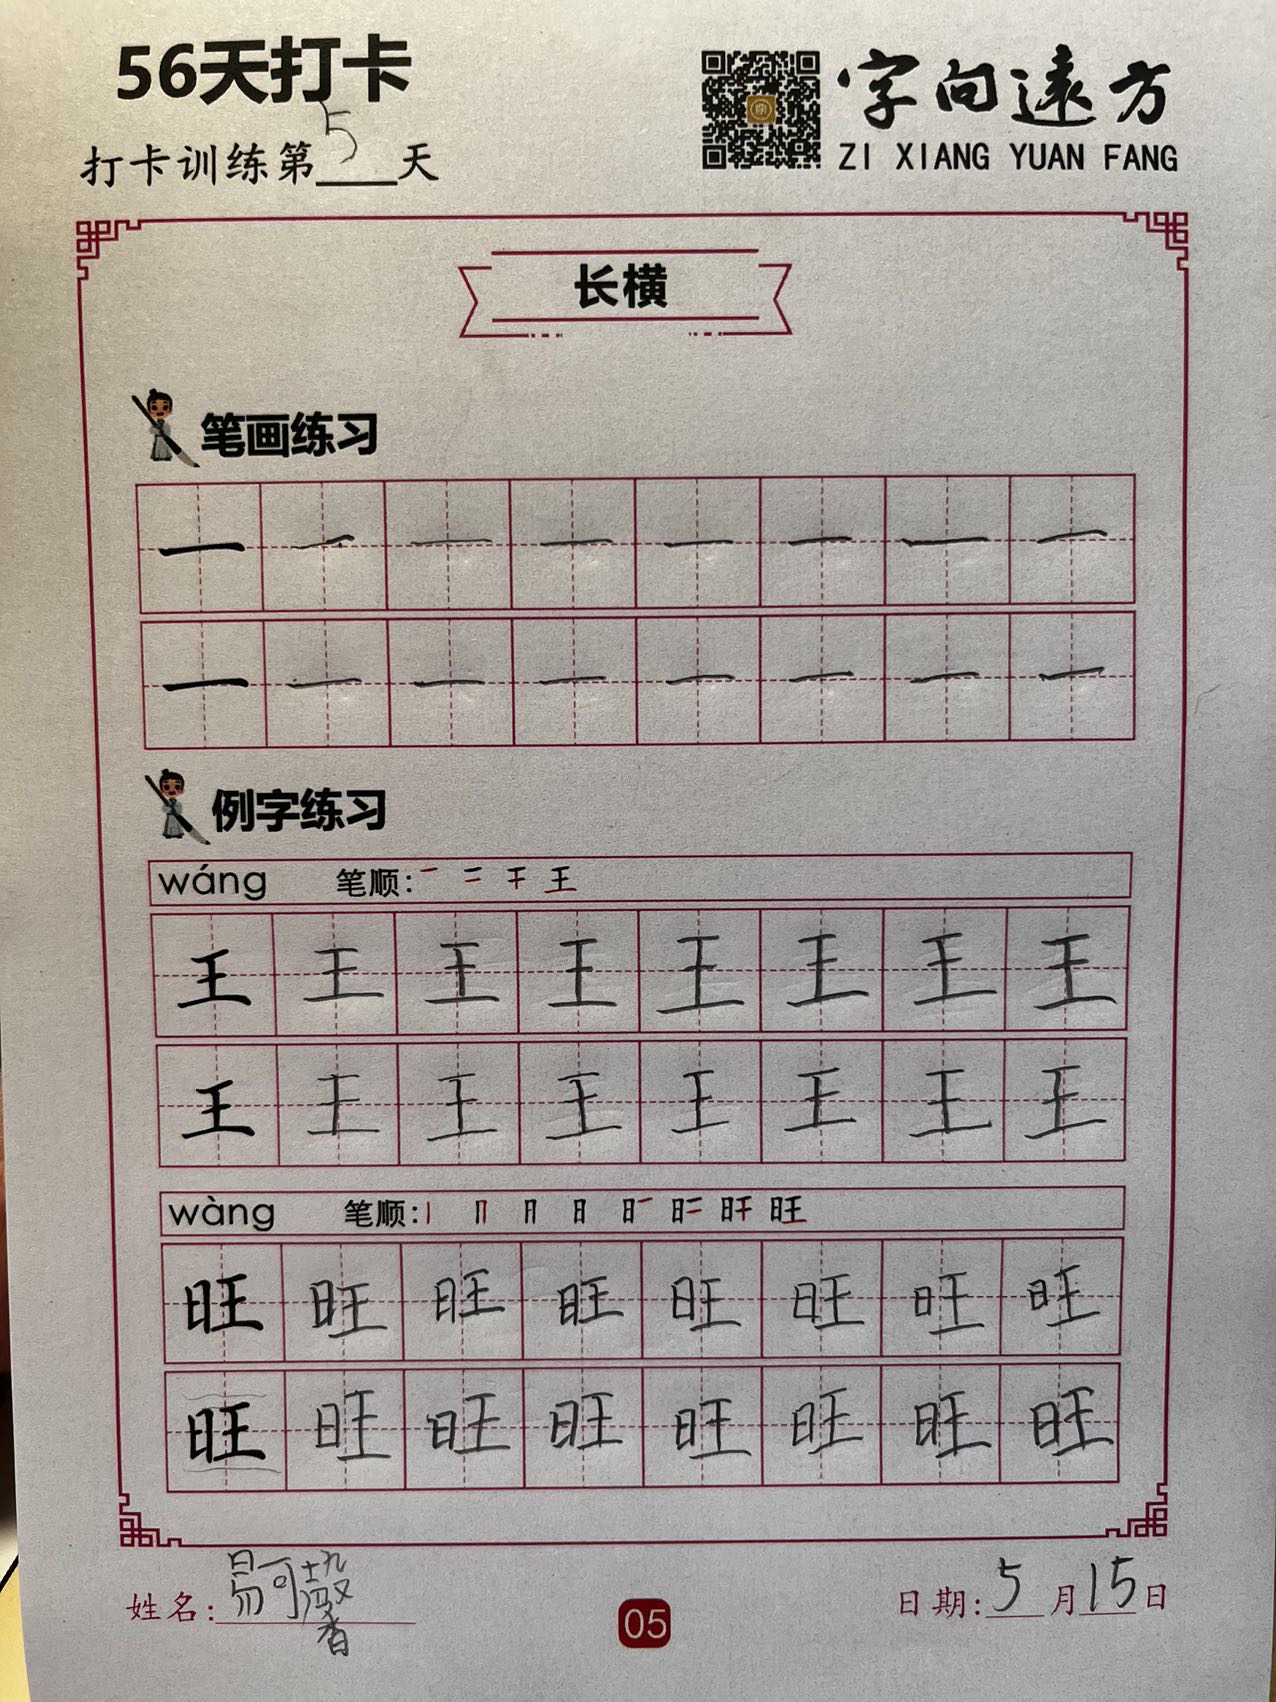 56天打卡
字向遠方
打卡训练第5天
ZI XIANG YUAN FANG
长横
笔画练习
一 一 一 一 一 一 一 一
一 一 一 一 一 一 一 一
例字练习
wáng 笔顺: 一 二 干 王
王 王 王 王 王 王 王 王
王 王 王 王 王 王 王 王
wàng 笔顺: 丨 冂 月 日 旺
旺 旺 旺 旺 旺 旺 旺 旺
旺 旺 旺 旺 旺 旺 旺 旺
姓名: 易可馨
05
日期: 5月15日